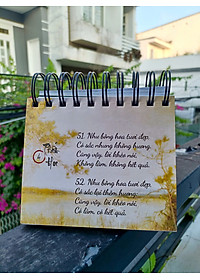 Phật
Học
51. Như bông hoa tươi đẹp,
Có sắc nhưng không hương,
Cũng vậy, lời khéo nói,
Không làm, không kết quả.
52. Như bông hoa tươi đẹp,
Có sắc lại thêm hương;
Cũng vậy, lời khéo nói,
Có làm, có kết quả.